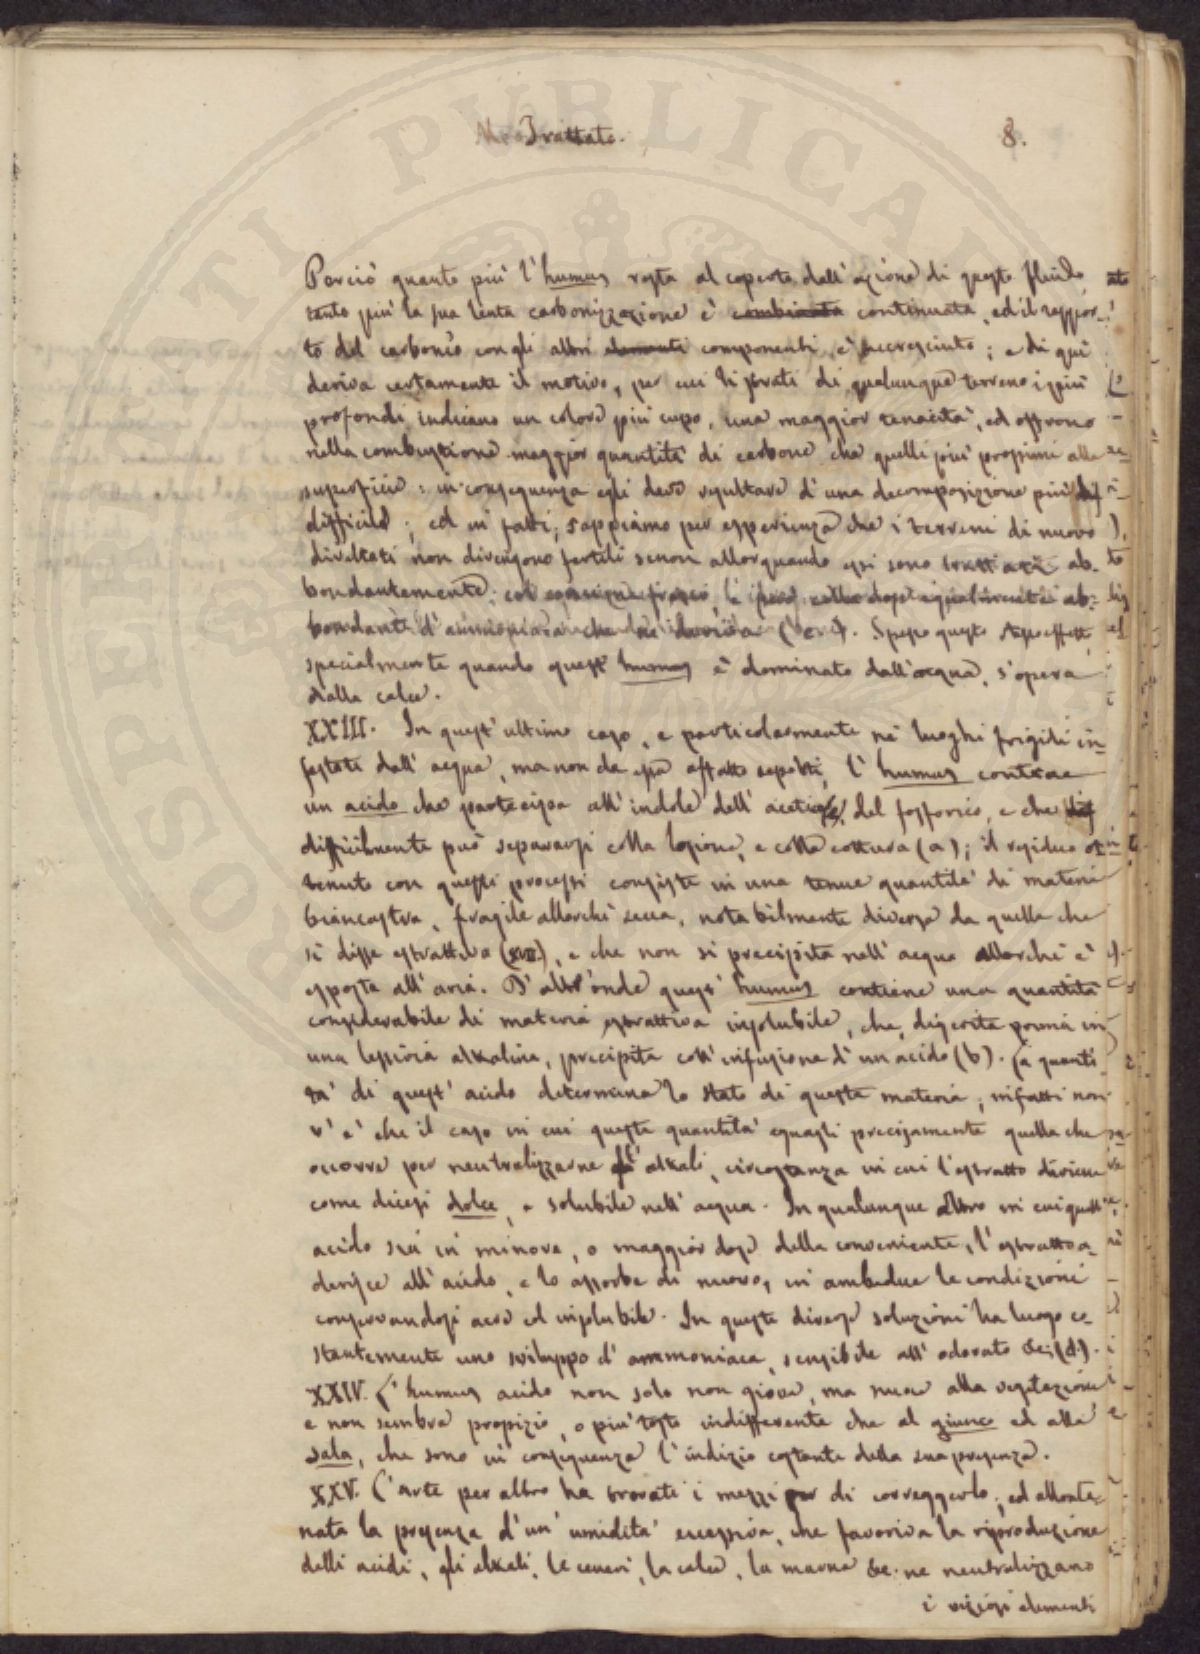 Trattato. 8.
Perciò quanto più l'humus resta al coperto dall'azione di questo fluido
tanto più la sua lenta carbonizzazione è cambiante continuata, ed il rappor-
to del carbonio con gli altri elementi componenti, è accresciuto; e da qui
deriva certamente il motivo, per cui li strati di qualunque terreno i più
profondi indicano un colore più cupo, una maggior tenacità, ed offrono
nella combustione maggior quantità di carbone che quelli più prossimi alla
superficie: in conseguenza egli deve resultare d'una decomposizione più dif
difficile; ed in fatti, sappiamo per esperienza che i terreni di nuovo
diveltati non divengono fertili senon allorquando essi sono trattati ab-
bondantemente col concime fresco, ab-
bondante d'ammoniaca che ne deriva. Spesso questo effetto,
specialmente quando quest'humus è dominato dall'acqua, s'opera
dalla calce.
XXIII. In quest'ultimo caso, e particolarmente ne' luoghi frigidi in-
festati dall'acqua, ma non da essa affatto sepolti, l'humus contrae
un acido che partecipa all'indole dell'acetico, del fosforico, e che dif
difficilmente può separarsi colla lozione, e colla cottura (a); il residuo ot-
tenuto con questi processi consiste in una tenue quantità di materia
biancastra, fragile allorchè secca, notabilmente diversa da quella che
si disse estrattiva (XVIII.), e che non si precipita nell'acqua allorchè è
esposta all'aria. D'altr'onde quest'humus contiene una quantità
considerabile di materia estrattiva insolubile, che, digerita prima in
una lessivia alkalina, precipita coll'infusione d'un acido (b). La quanti-
tà di quest'acido determina lo stato di questa materia; infatti non
v'è che il caso in cui questa quantità eguagli precisamente quella che
occorre per neutralizzarne l'alkali, circostanza in cui l'estratto diviene
come dicesi dolce, e solubile nell'acqua. In qualunque altro in cui quell'
acido sia in minore, o maggior dose della conveniente, l'estratto a-
derisce all'acido, e lo assorbe di nuovo, in ambedue le condizioni
conservandosi acre ed insolubile. In queste diverse soluzioni ha luogo co-
stantemente uno sviluppo d'ammoniaca, sensibile all'odorato &c. (d).
XXIV. L'humus acido non solo non giova, ma nuoce alla vegetazione
e non sembra propizio, o più tosto indifferente che al giunco ed alla
sala, che sono in conseguenza l'indizio costante della sua presenza.
XXV. L'arte per altro ha trovati i mezzi per di correggerlo; ed allonta-
nata la presenza d'un'umidità eccessiva, che favoriva la riproduzione
delli acidi, gli alkali, le ceneri, la calce, la marna &c. ne neutralizzano
i viziosi elementi